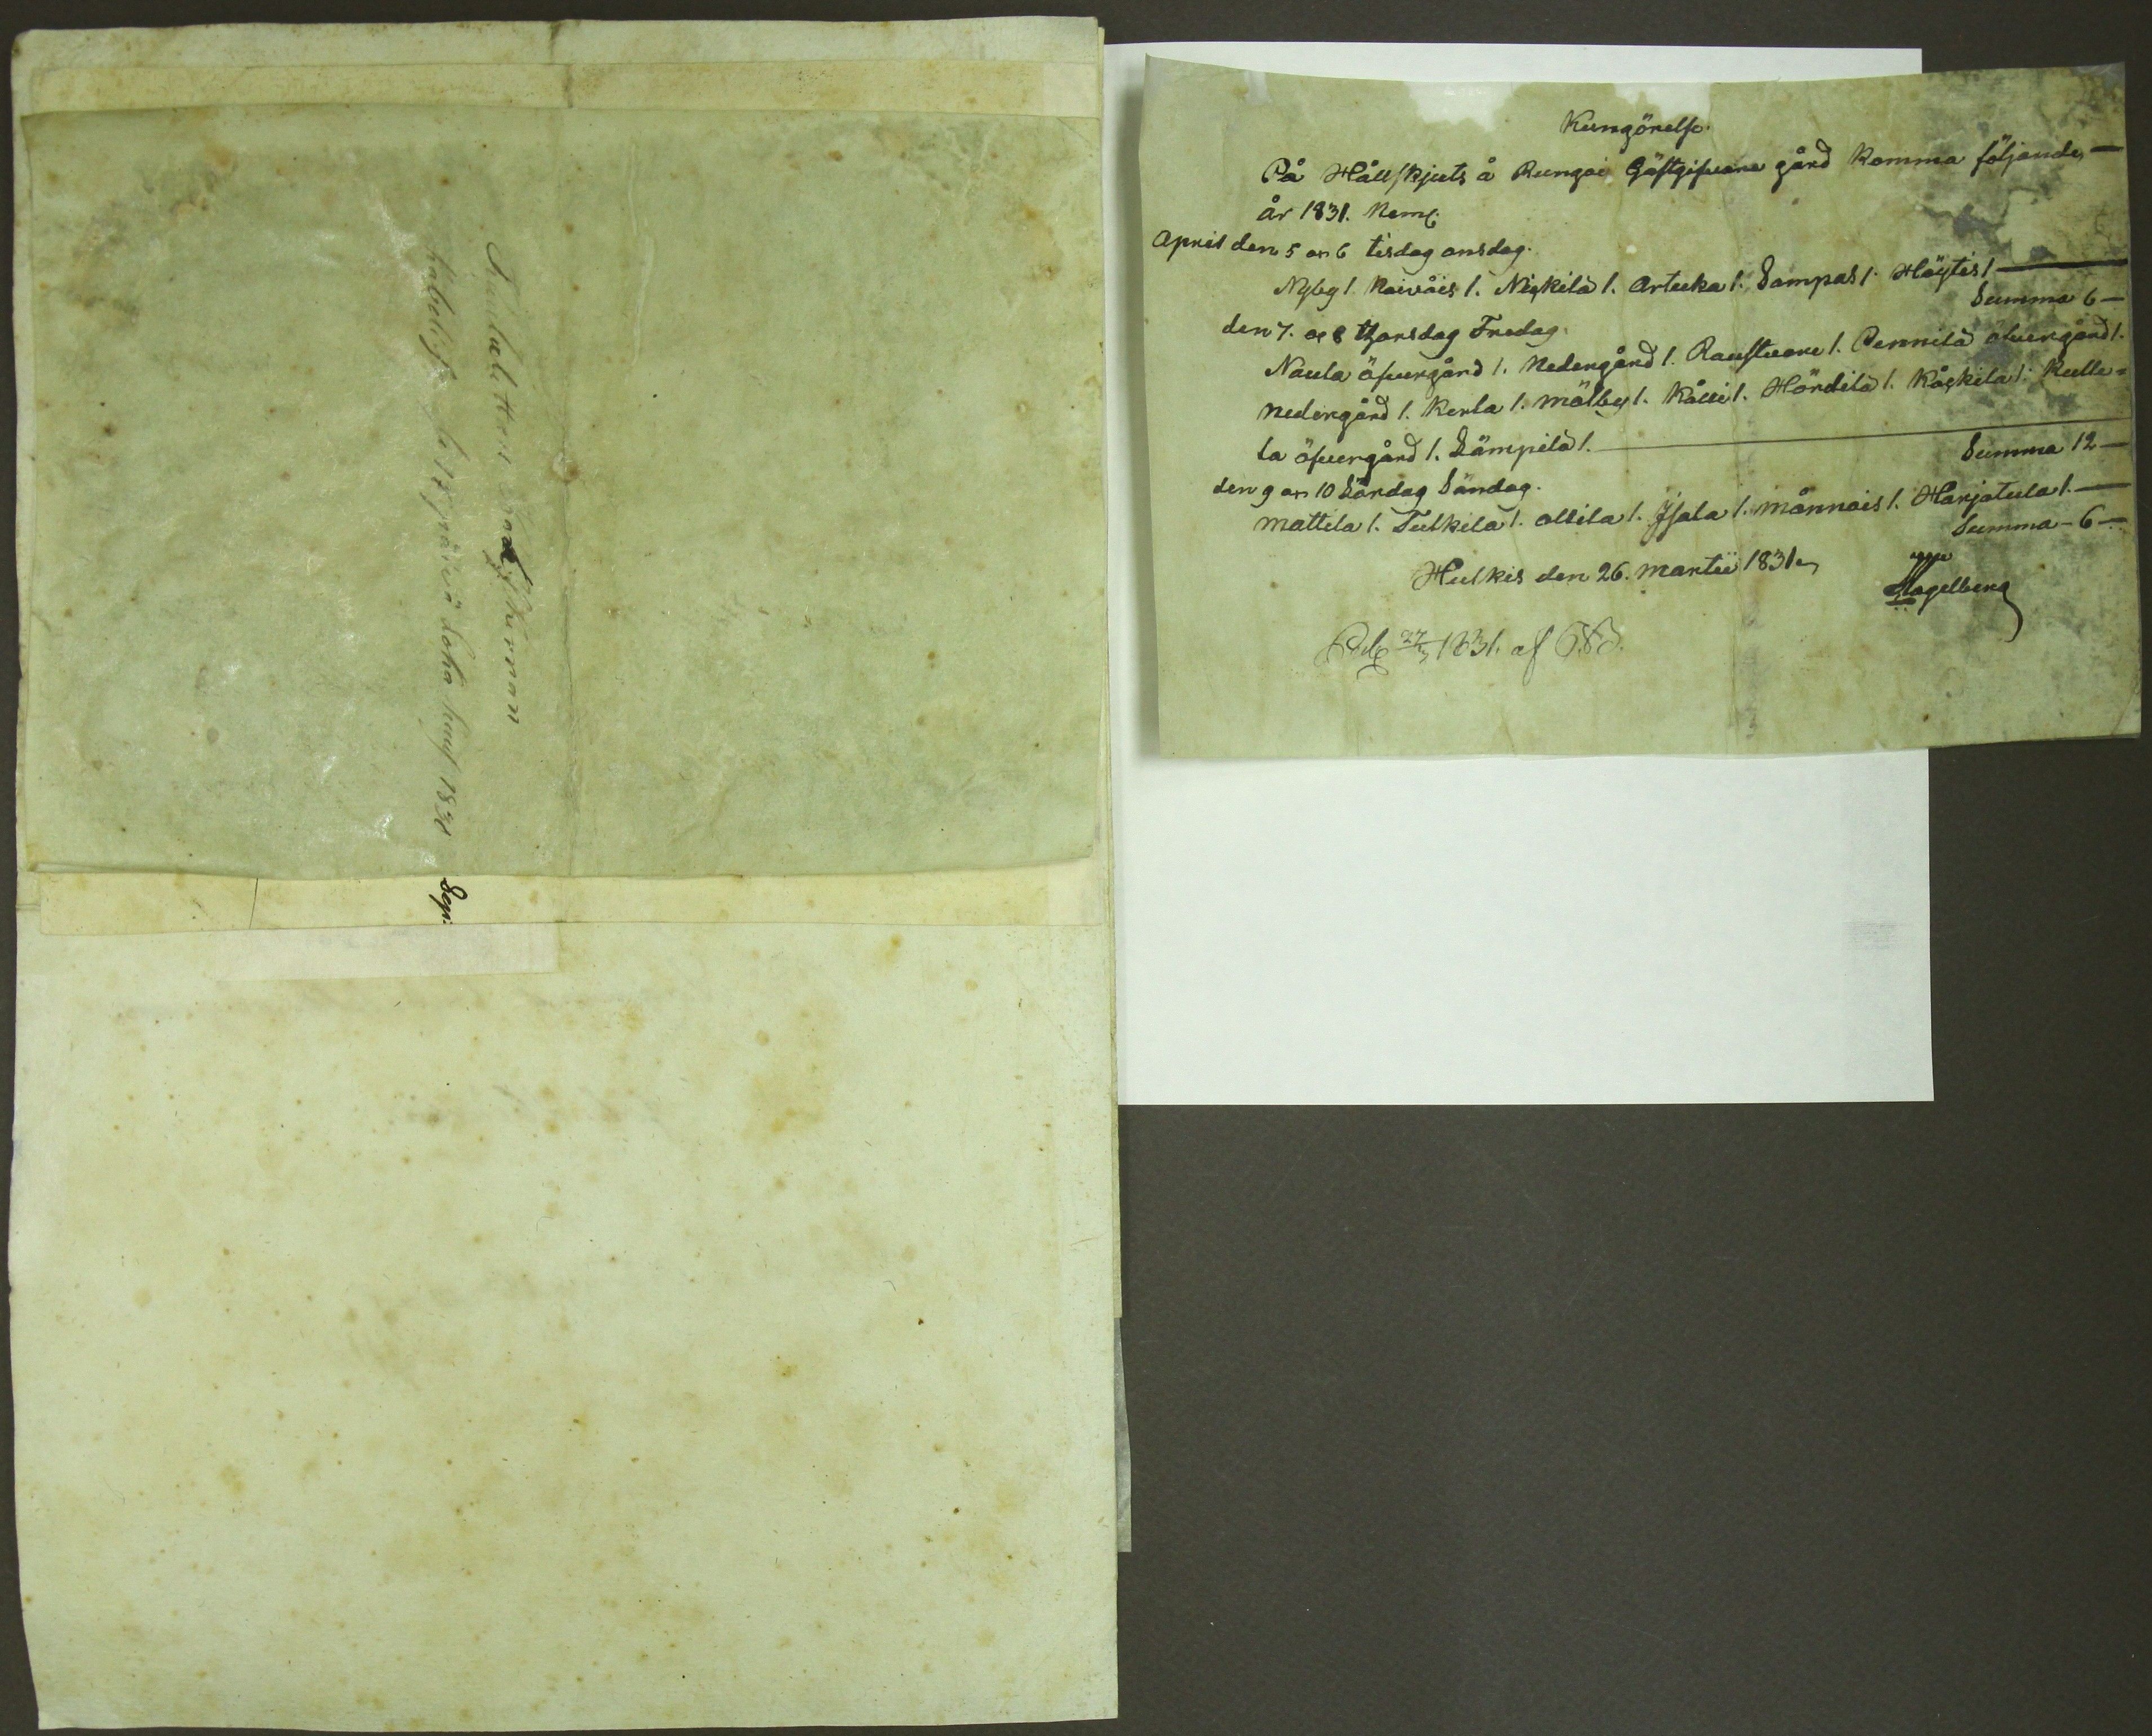 Kungörelse.
På Hållskjuts å Rungoi Gästgifvare gård komma följande, —
år 1831. Neml.
April den 5 on 6 tisdag onsdag.
Nyby 1. Kaivåis 1. Niskila 1. Artuka 1. Sampas 1. Höytis 1 —
Summa 6 —
den 7. og 8 thorsdag Fredag.
Naula öfvergård 1. Nedergård 1. Raustvare 1. Pennila öfvergård 1.
nedergård 1. Kerla 1. mälby 1. Källi 1. Hördila 1. Kåskila 1. Kulle=
la öfvergård 1. Lämpilä 1. —
Summa 12 —
den 9 on 10 Lördag Söndag.
mattila 1. Tulkila 1. allila 1. Jsala 1. månnois 1. Harjatula 1. —
Summa - 6 —
Hulkis den 26. martii 1831
Hagelberg
27/3 1831. af
päivä loka kuus 1831
Sepr: